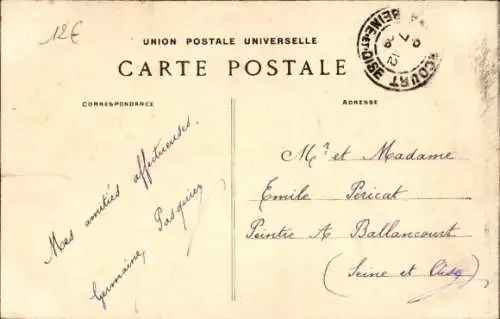 12€
UNION POSTALE UNIVERSELLE
CARTE POSTALE
CORRESPONDANCE
ADRESSE
SEINE-ET-OISE
Mes amitiés affectueuses.
Germaine, Pasquier
Mr et Madame
Emile Péricat
Peintre A Ballancourt
(Seine et Oise)